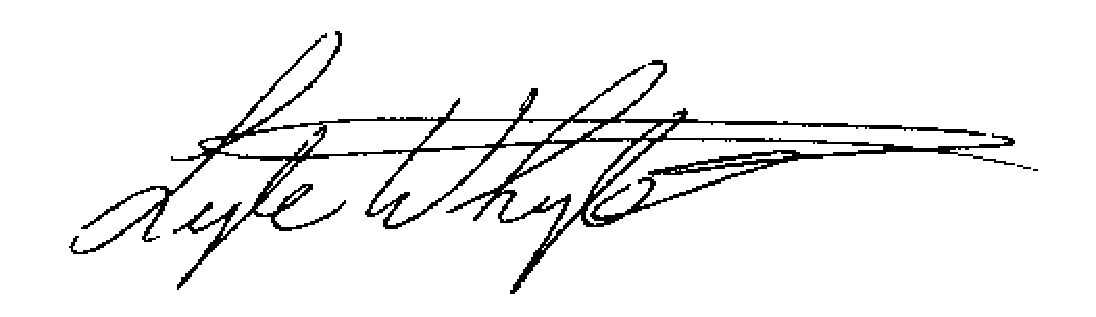 Lyle Whyte